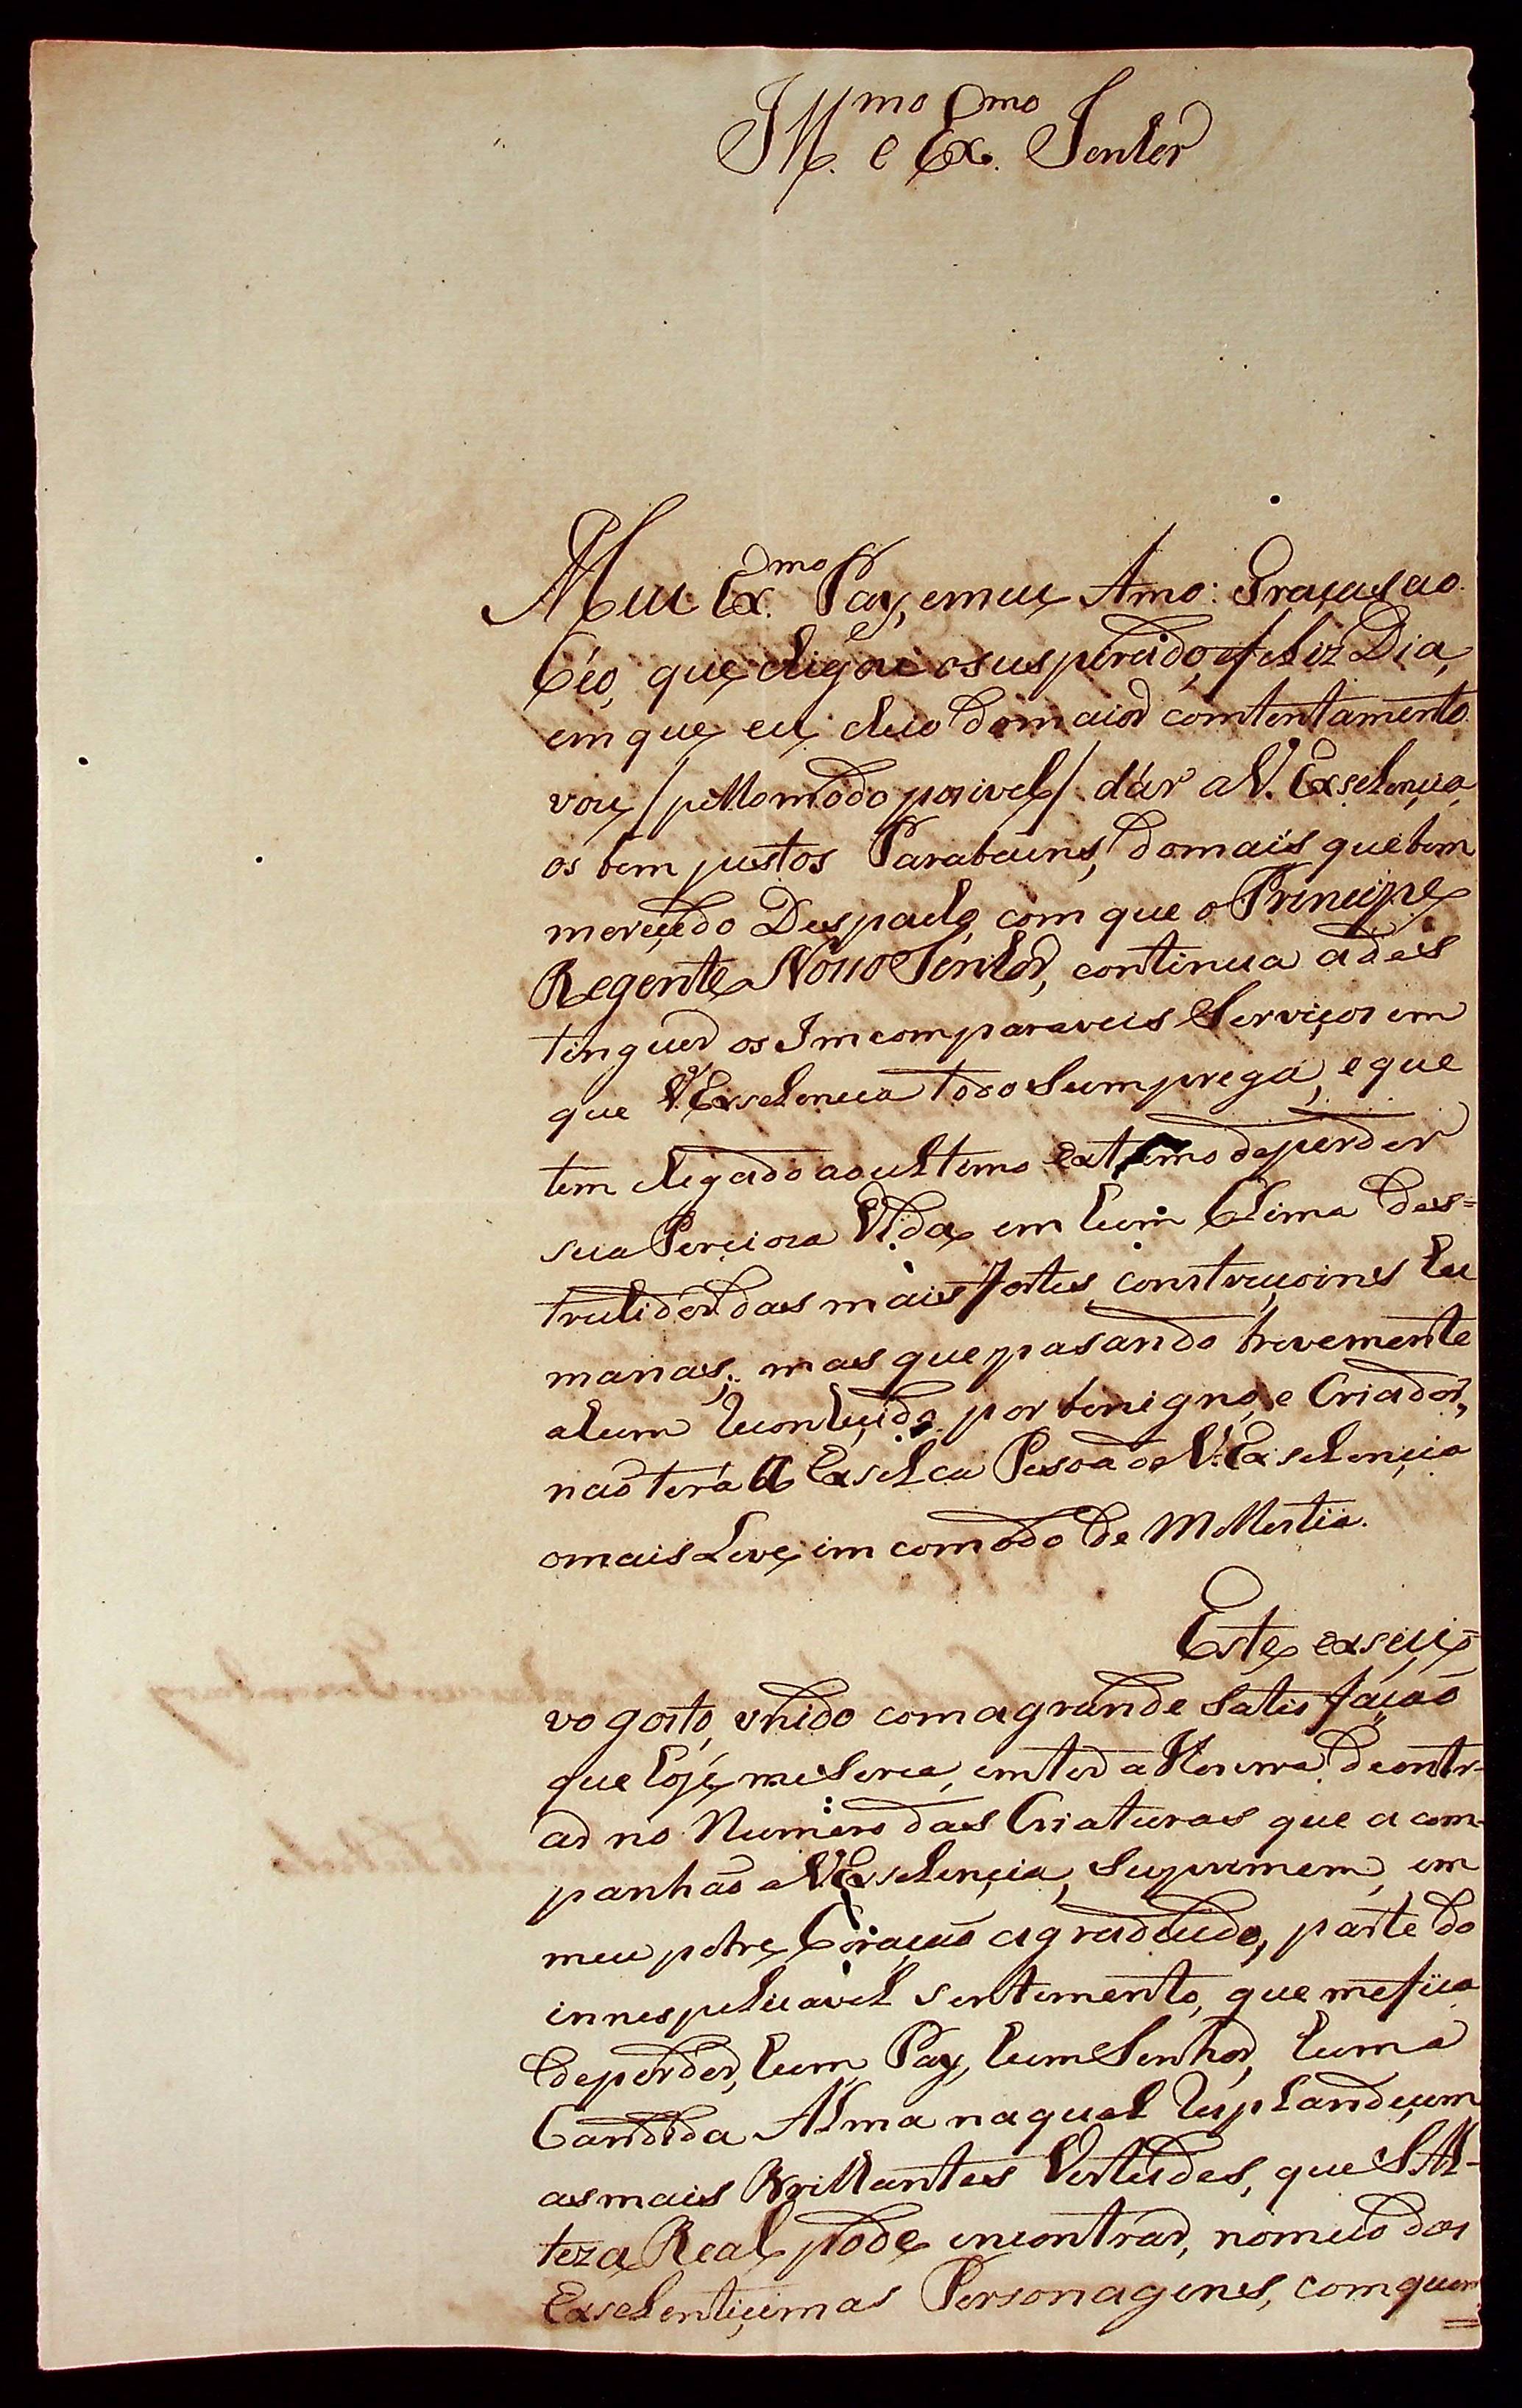 Ill.mo e Ex.mo Senhor
Meu Ex.mo Pay, emeu Amo: Graçasao
Céo, que chegou osusperado, efeliz Dia,
em que eu cheio domaior comtentamento
vou /pello modo posivel/ dár aV. Exselençia
os bem justos Parabains, domais quebem
mereçido Despacho, com que o Prencipe
Regente Nosso Senhor, continua ades
tinguer os Imcomparaveis Serviços em
que V.Exselencia todo Seumprega, e que
tem chegado aoultemo extremo deperder
sua Perciosa Vida em hum Clima des=
truhidor das mais fortes construçoines hu
manas; mas que pasando brevemente
ahum conheçido por benigno, e Criador,
não terá a Exselca Pesoa de V.Exselençia
omais Leve imcomodo de Mollestia.
Este exseçi=
vo gosto, unido comagrande Satisfação
que hoje meSeria, emter a Honrra deentr-
ar no Numero das Criaturas que acom-
panhão aV.Exselençia, Suprimem, em
meu pobre Coração agradeçido, parte do
innespelicavel sentemento, que mefica
deperder, hum Pay, humSenhor, huma
Candida Alma naqual resplandeçem
asmais Brilhantes Vertudes, que S.Al-
teza Real pode encontrar, nomeio das
Exselentiçimas Personagines, comquem